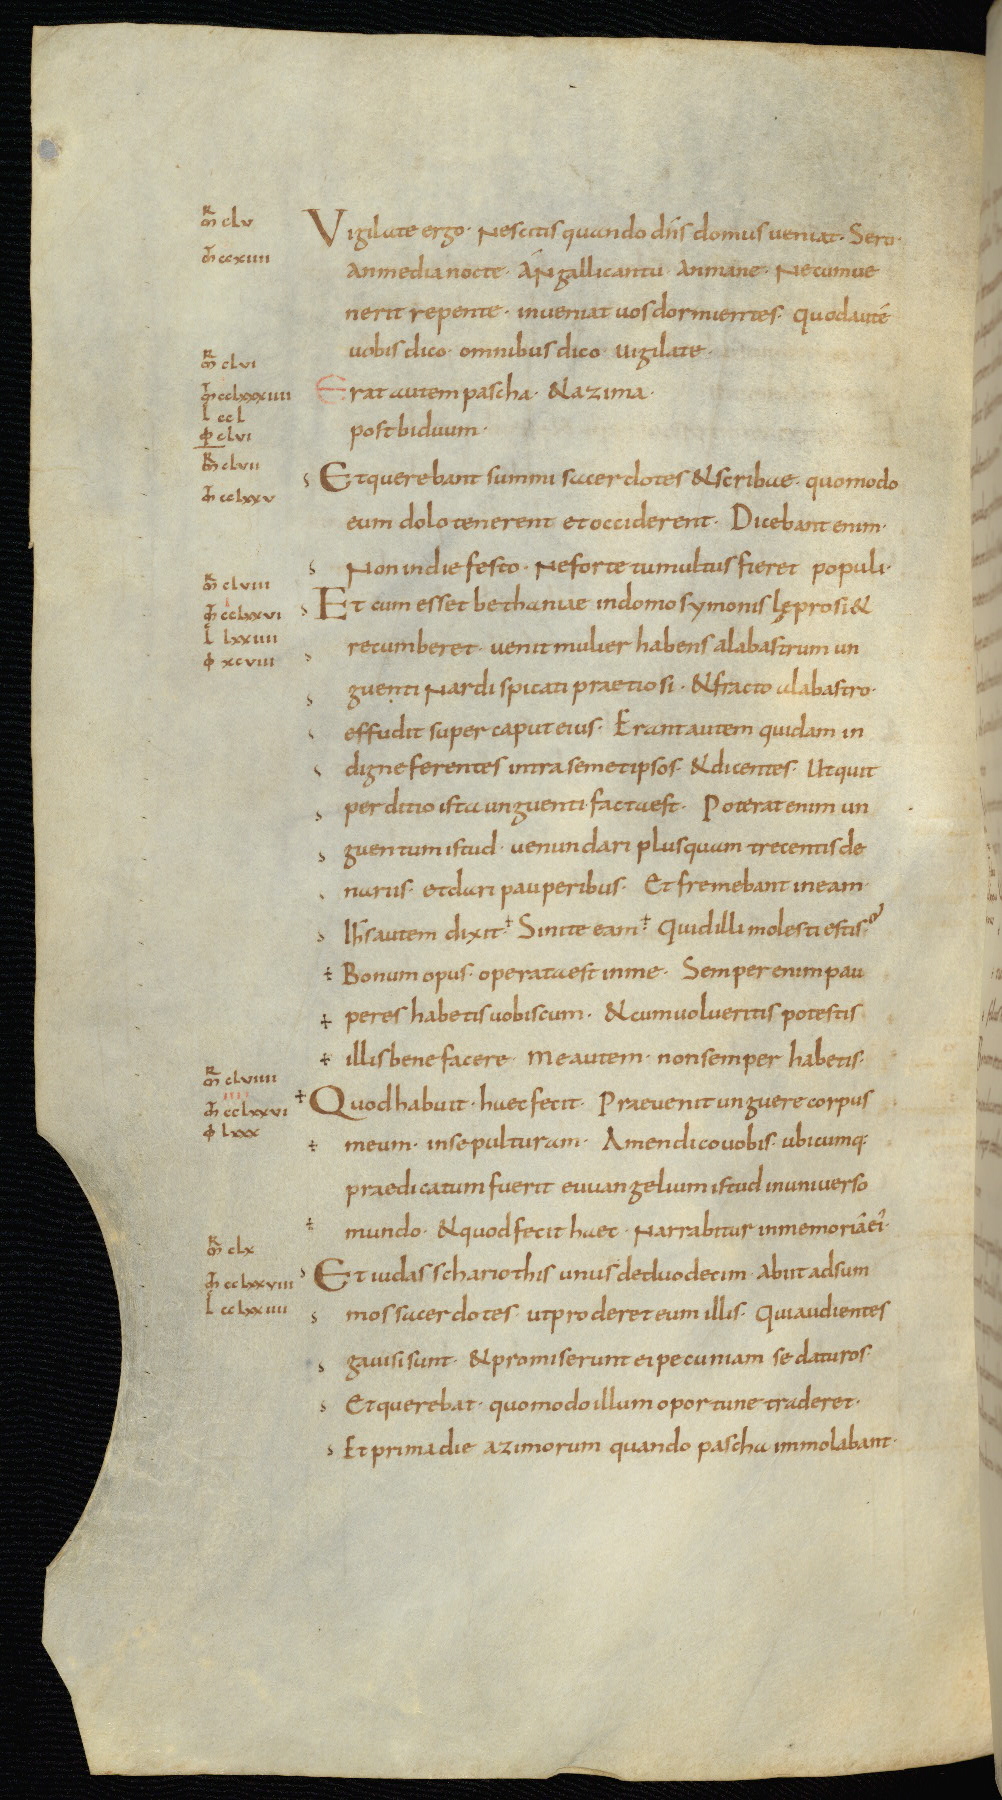 m̅ clv
Vigilate ergo· Nescitis quando dn̄s domus ueniat· Sero·
m̅ ccxiiii
An media nocte· An gallicantu· An mane· Ne cum ue
nerit repente· inueniat uos dormientes· quod autē
uobis dico· omnibus dico· uigilate·
m̅ clvi
m̅ cclxxxiiii
Erat autem pascha· & azima·
l ccl
post biduum·
φ clvi
m̅ clvii
Et querebant summi sacerdotes & scribae· quomodo
m̅ cclxxv
eum dolo tenerent et occiderent· Dicebant enim·
Non in die festo· Ne forte tumultus fieret populi·
m̅ clviii
m̅ cclxxvi
Et cum esset bethaniae in domo symonis lęprosi &
l lxxiiii
recumberet· uenit mulier habens alabastrum un
φ xcviii
guenti Nardi spicati praetiosi· & fracto alabastro·
effudit super caput eius· Erant autem quidam in
digne ferentes intra semetipsos· & dicentes· Ut quit
perditio ista unguenti facta est· Poterat enim un
guentum istud· uenundari plusquam trecentis de
nariis· et dari pauperibus· Et fremebant in eam·
Ih̄s autem dixit· Sinite eam· Quid illi molesti estis
Bonum opus· operata est in me· Semper enim pau
peres habetis uobiscum· & cum uolueritis potestis
illis bene facere· Me autem· non semper habetis·
m̅ clviiii
m̅ cclxxvi
Quod habuit· haec fecit· Praeuenit unguere corpus
φ lxxx
meum· in sepulturam· Amen dico uobis· ubicumq;
praedicatum fuerit euuangelium istud in uniuerso
mundo· & quod fecit haec· Narrabitur in memoriā ei'·
m̅ clx
m̅ cclxxviii
Et iudas schariothis unus de duodecim· Abiit ad sum
l cclxxiiii
mos sacerdotes· ut proderet eum illis· Qui audientes
gauisi sunt· & promiserunt ei pecuniam se daturos·
Et querebat· quomodo illum oportune traderet·
Et prima die azimorum quando pascha immolabant·